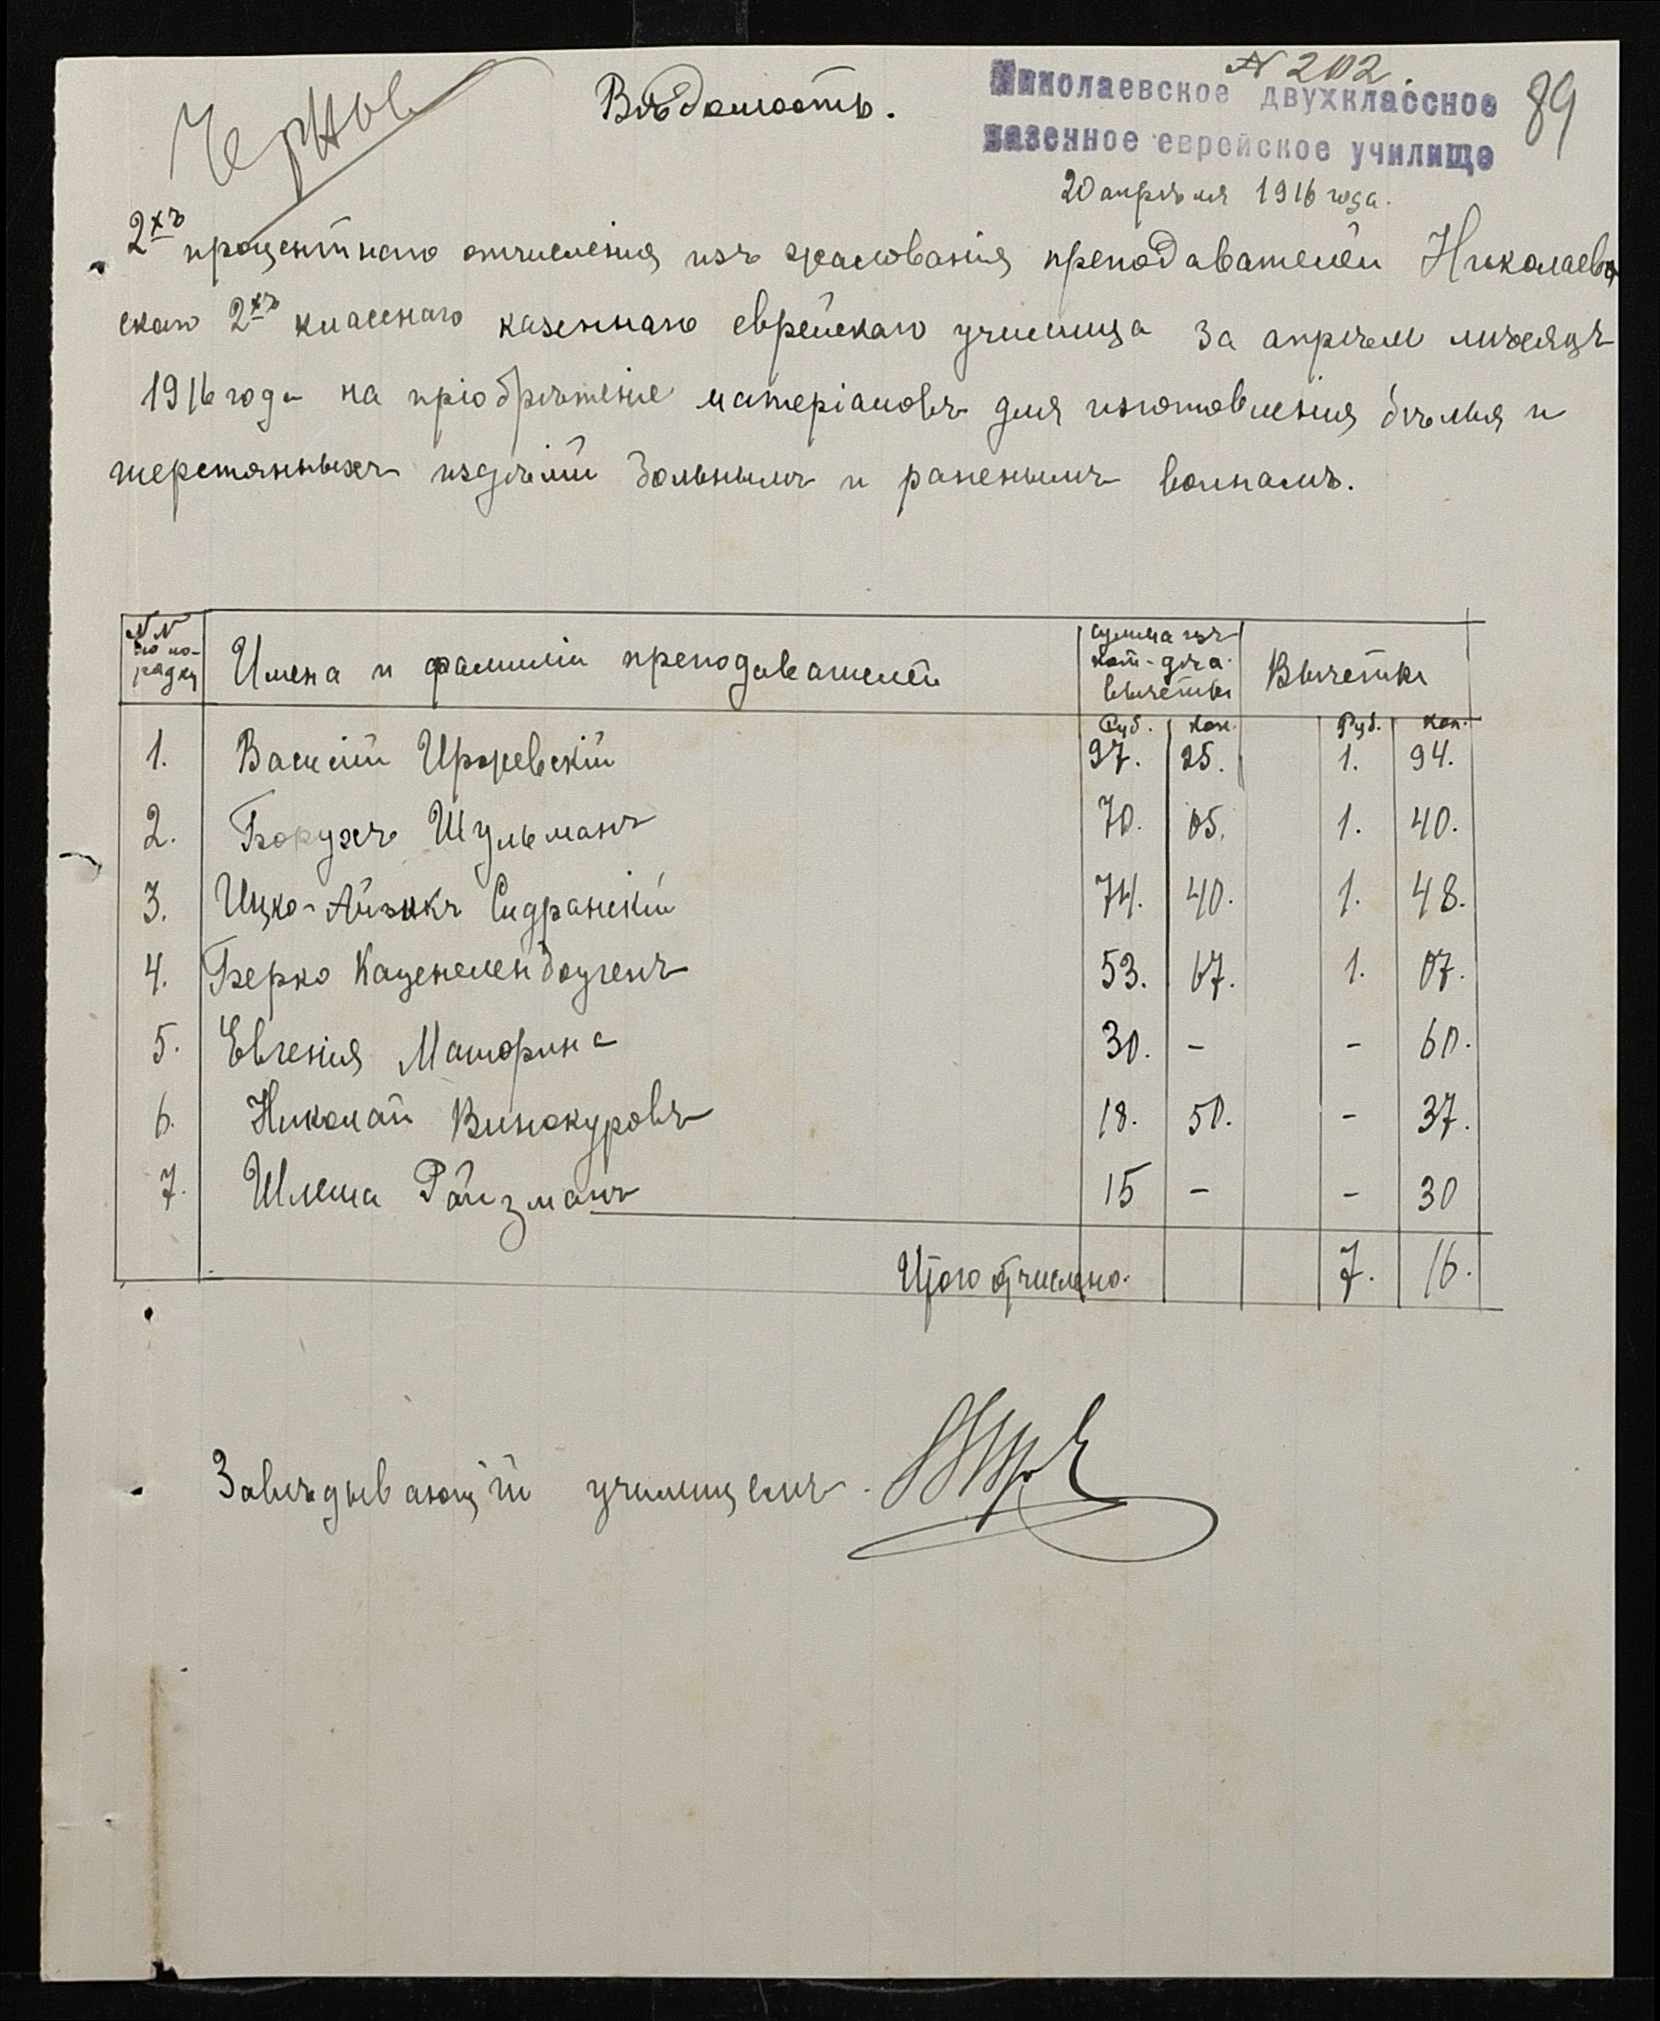 Чернов
Вѣдомость.
№ 202.
89
Николаевское двухклассное
казенное еврейское училище
20 апрѣля 1916 года.
2хъ процентнаго отчисленія изъ жалованія преподавателей Николаев-
скаго 2хъ класснаго казеннаго еврейскаго училища за апрѣль мѣсяцъ
1916 года на пріобрѣтеніе матеріаловъ для изготовленія бѣлья и
шерстянныхъ издѣлій больнымъ и раненымъ воинамъ.
№№ по по-рядку Имена и фамиліи преподавателей сумма изъ кот. дѣла. вычеты Вычеты
Руб. Коп. Руб. Коп.
1. Василій Иржевскій 97. 25. 1. 94.
2. Борухъ Шульманъ 70. 05. 1. 40.
3. Ицко-Айзикъ Сидранскій 74. 40. 1. 48.
4. Берко Каценеленбоугенъ 53. 67. 1. 07.
5. Евгенія Маторина 30. - - 60.
6. Николай Винокуровъ 18. 50. - 37.
7. Шлема Райзманъ 15 - - 30
Итого отчислено. 7. 16.
Завѣдывающій училищемъ